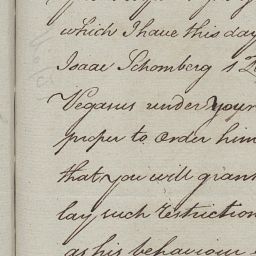 which I have this day
Isaac Schomberg 1
Pegasus under your
proper to order him
that you will gran
lay such restriction
as his behaviour